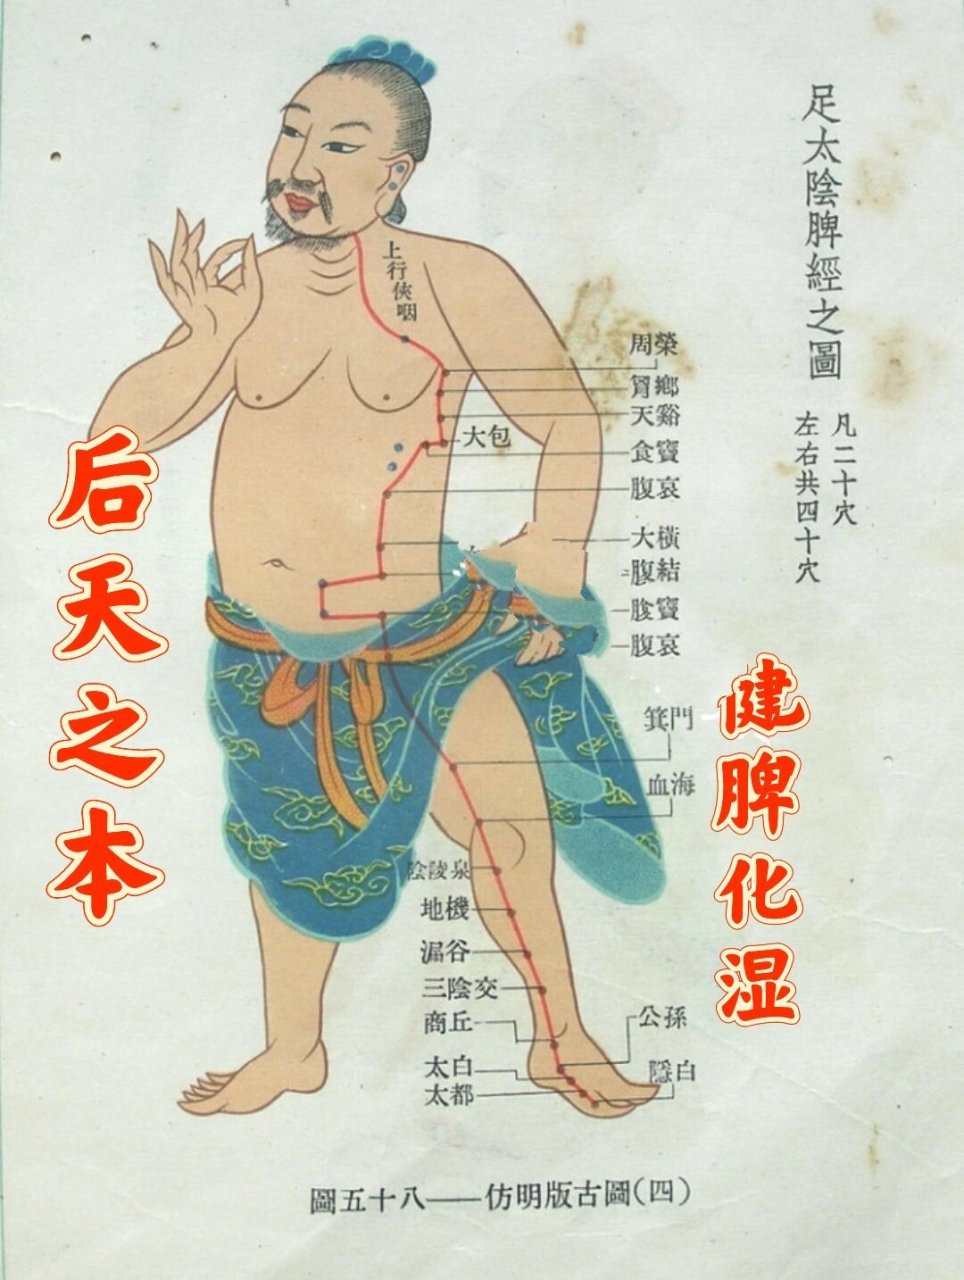 足太陰脾經之圖
凡二十穴
左右共四十穴
上行俠咽
周榮
胷鄉
天谿
大包
食竇
腹哀
大橫
腹結
腹竇
腹哀
箕門
血海
陰陵泉
地機
漏谷
三陰交
商丘
公孫
太白
隱白
太都
后天之本
健脾化湿
圖五十八——仿明版古圖(四)